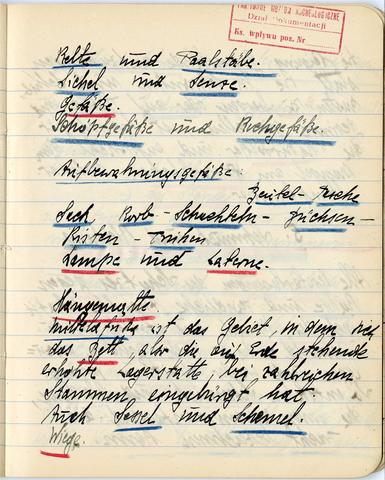 MUZEUM ARCHEOLOGICZNE
Dział Dokumentacji
Ks. wpływu poz. Nr
Kelte und Paalstäbe.
Sichel und Sense.
Gefäße.
Schöpfgefäße und Kochgefäße.
Aufbewahrungsgefäße:
Beutel - Tasche
Sack Korb - Schachteln - Büchsen -
Kisten - Truhen
Lampe und Laterne.
Hängematte.
ist das Gebiet, in dem sich
das Bett, also die auf Erde stehende
erhöhte Lagerstatt, bei zahlreichen
Stämmen eingebürgt hat.
Auch Sessel und Schemel.
Wiege.